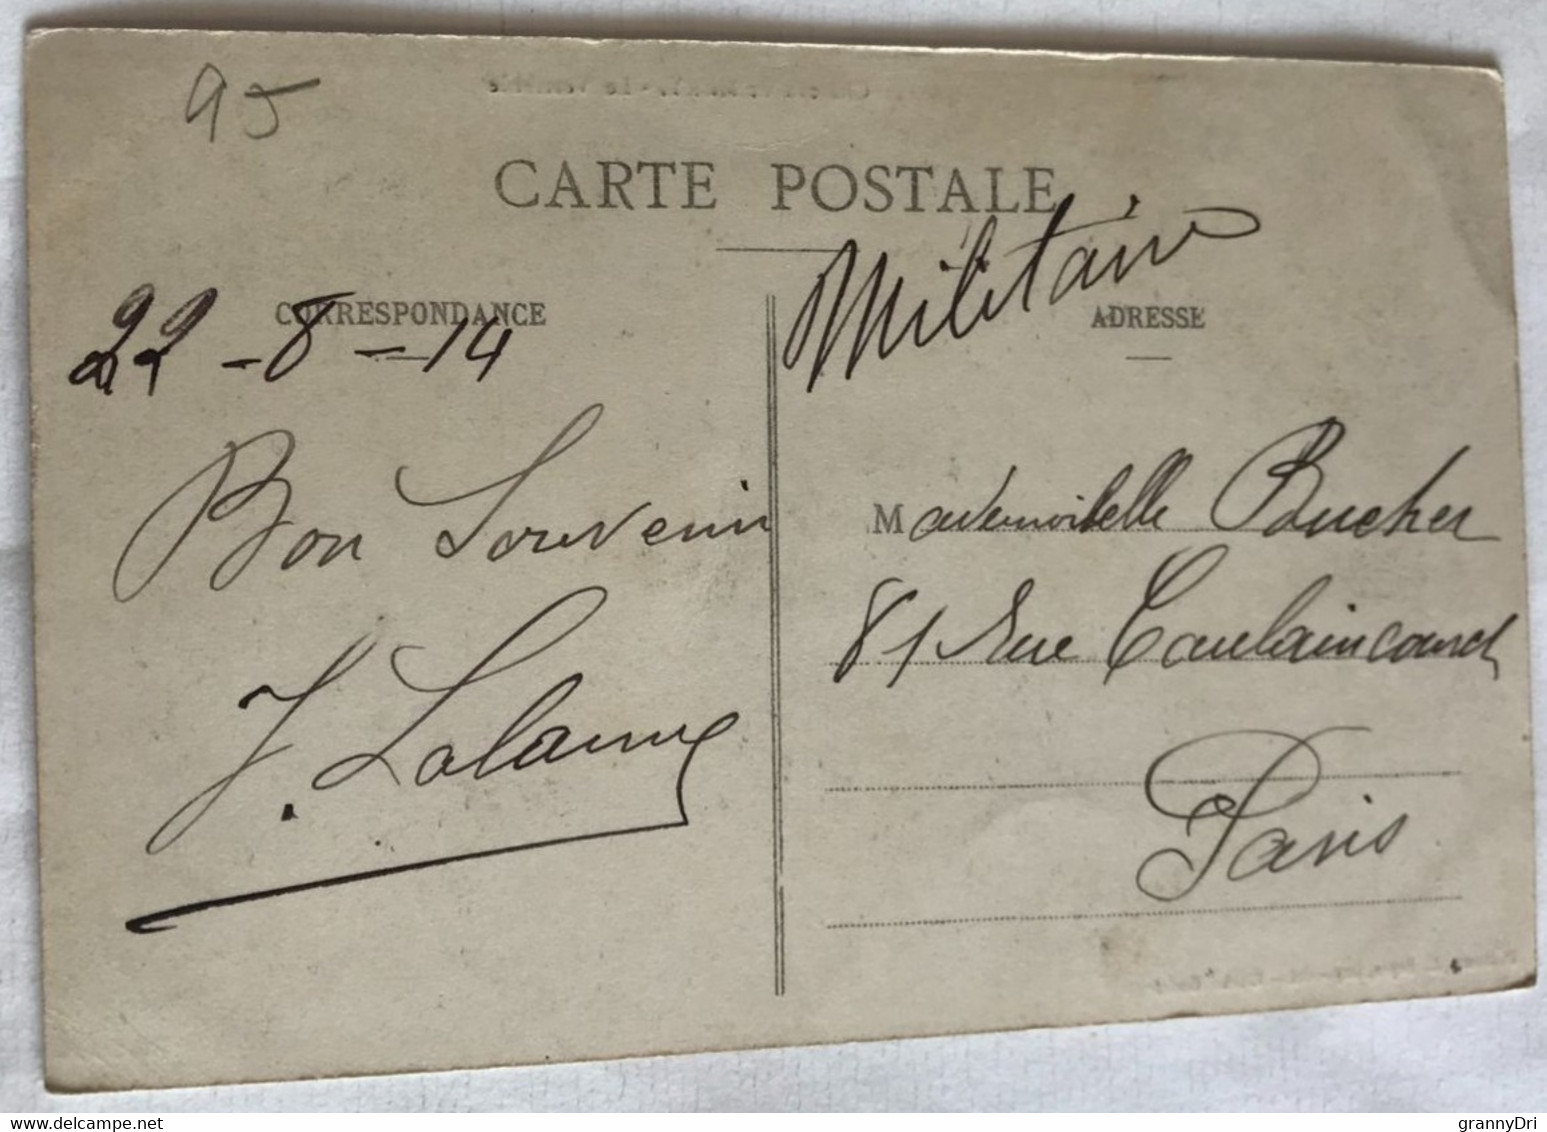 95
CARTE POSTALE
Militaire
CORRESPONDANCE
22-8-14
Bon Souvenir
J. Lalanne
ADRESSE
Mademoiselle Bucher
81 Rue Caulaincourt
Paris
grannyDri